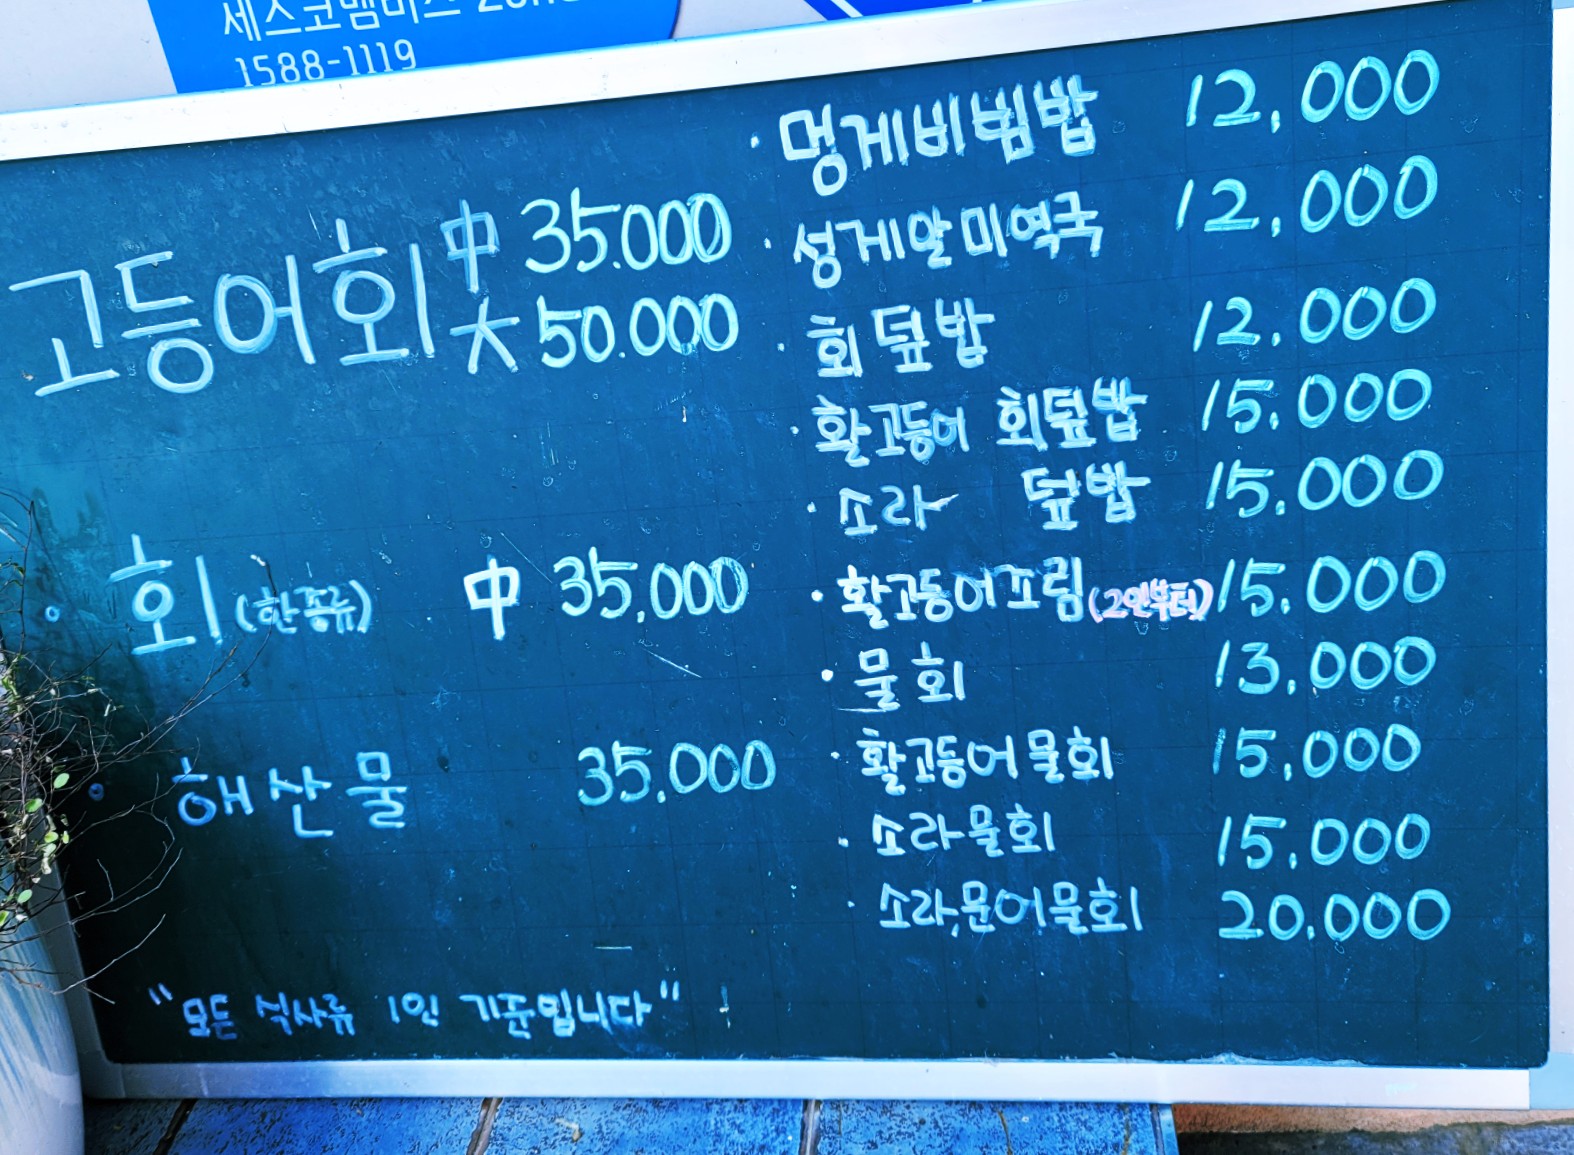 세스코멤버스 Zone
1588-1119
고등어회 中 35.000
大 50.000
· 회 (한종류) 中 35,000
· 해산물 35.000
"모든 식사류 1인 기준입니다"
· 멍게비빔밥 12,000
· 성게알미역국 12,000
· 회덮밥 12.000
· 활고등어 회덮밥 15.000
· 소라 덮밥 15.000
· 활고등어조림(2인부터) 15.000
· 물회 13.000
· 활고등어물회 15,000
· 소라물회 15.000
· 소라,문어물회 20.000